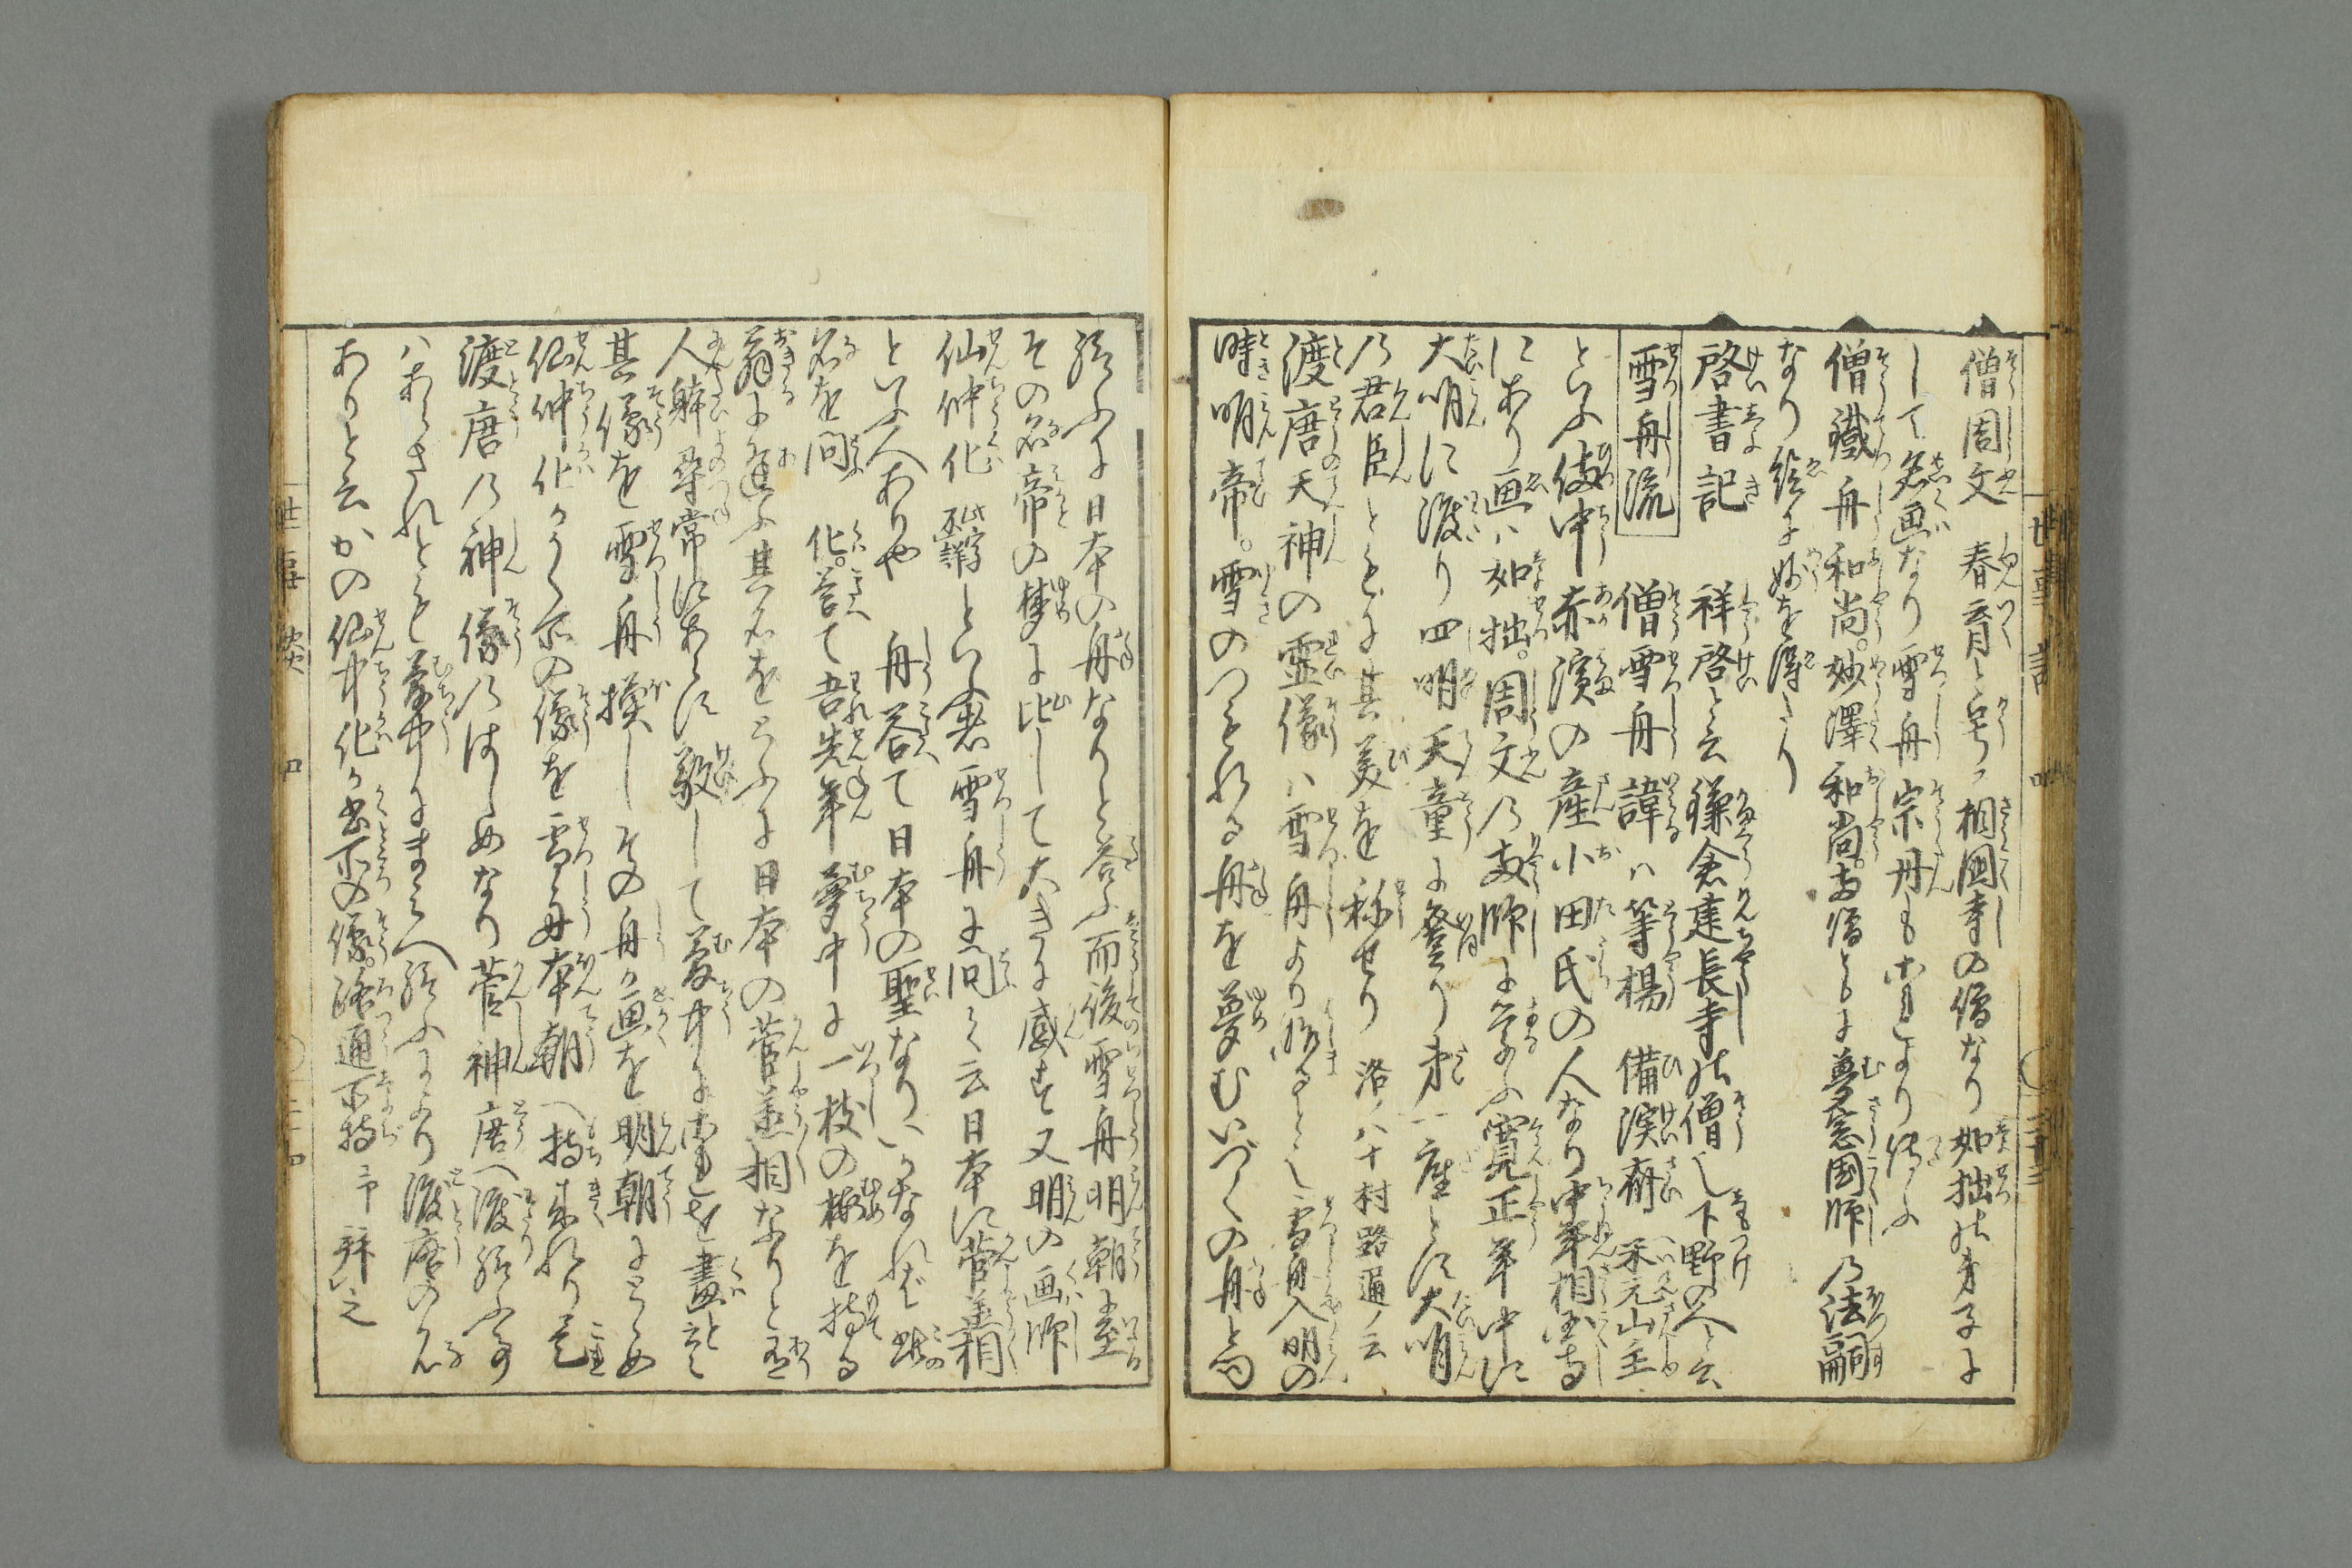 僧周文 春育と号ス相國寺の僧なり如拙の弟子に
して名画なり雪舟宗丹もこれより傳ふ
僧鐵舟和尚。妙澤和尚。両僧ともに夢窓国師の法嗣
なり絵に妙を得たり
啓書記 祥啓と云鎌倉建長寺の僧也下野の人と云
雪舟流 僧雪舟諱ハ等楊 備渓齋 米元山主
といふ備中赤濱の産小田氏の人なり中年相国寺
にあり画ハ如拙。周文の両師に学ふ寛正年中に
大明に渡り四明天童に登り第一座とす大明
の君臣ともに其美を称せり 洛ノ八十村路通ノ云
渡唐天神の霊像ハ雪舟より始ると也雪舟入明の
時明帝。雪のつもれる舟を夢むいづくの舟と問
給ふに日本の舟なりと答ふ而後雪舟明朝に至
その名帝の夢に比して大きに感す又明の画師
仙仲化 此字不詳 といふ者雪舟に問て云日本に菅羕相
といふ人ありや 舟答て日本の聖なりいかなれば此
名を問 化。答て吾先年夢中に一枝の梅を持る
翁に逢ふ其名をとふに日本の菅羕相なりと有
人躰尋常にあらす敬して夢中にこれを畫と云
其像を雪舟摸しその舟か画を明朝にとゝめ
仙仲化かゝく所の像を雪舟本朝へ持来れり是
渡唐の神像のはしめなり菅神唐へ渡給ふ事
ハあらされとも夢中にまみへ給ふによりて渡唐の名
ありと云かの仙中化か書所の像。路通所持 予拝之
世事談 四 〇二十三
世事談 四 〇二十四